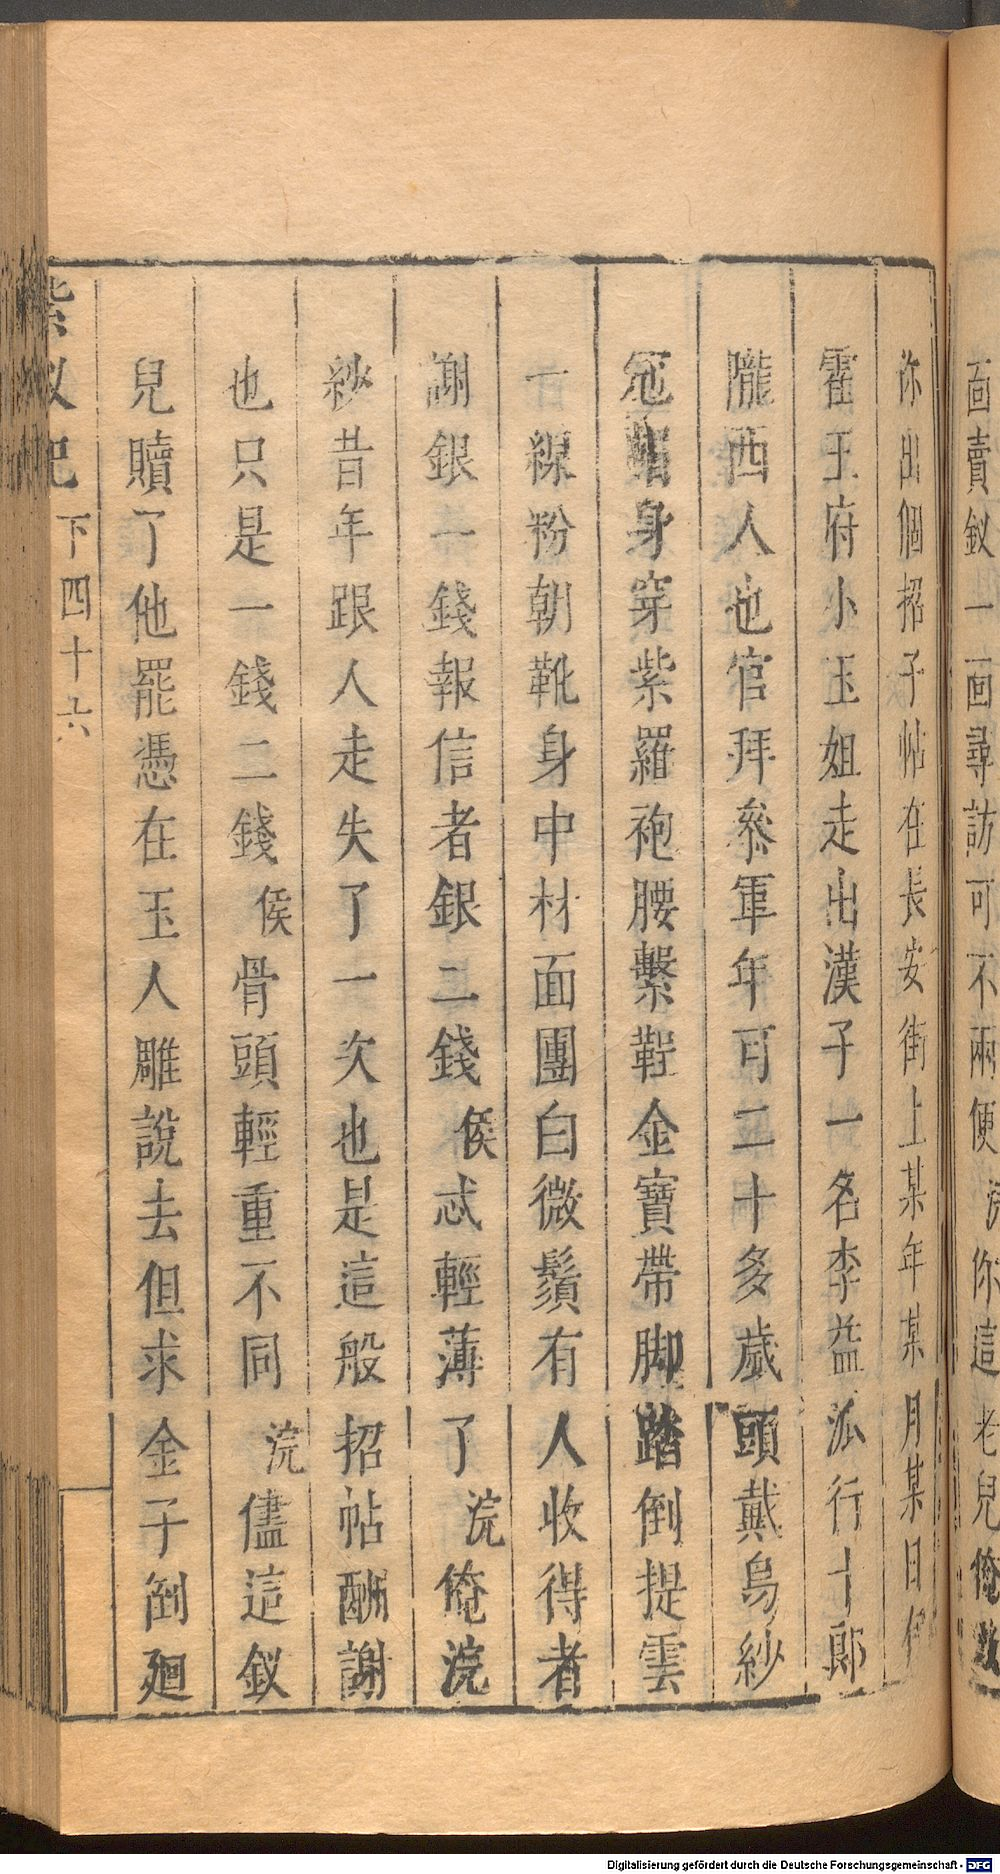 面賣釵一面尋訪可不兩便浣你這老兒俺教
你出個招子帖在長安街上某年某月某日
霍王府小玉姐走出漢子一名李益派行十郎
隴西人也官拜參軍年可二十多歲頭戴烏紗
冠帽身穿紫羅袍腰繫鞓金寶帶脚踏倒提雲
一線粉朝靴身中材面團白微鬚有人收得者
謝銀一錢報信者銀二錢侯忒輕薄了浣俺浣
紗昔年跟人走失了一次也是這般招帖酬謝
也只是一錢二錢侯骨頭輕重不同浣儘這釵
兒贖了他罷憑在玉人雕說去但求金子倒廻
紫釵記 下 四十六
Digitalisierung gefördert durch die Deutsche Forschungsgemeinschaft - DFG